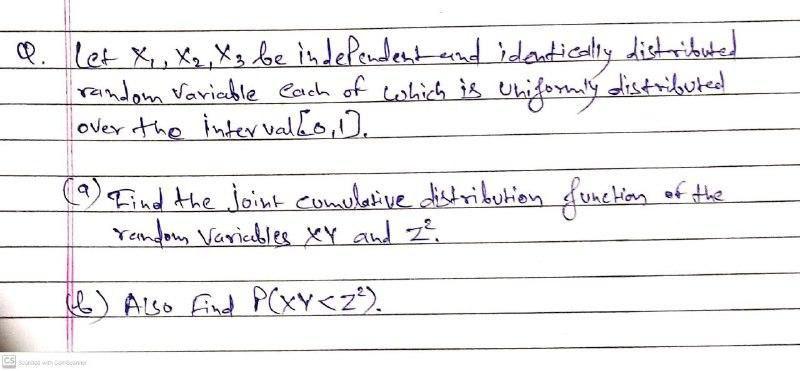 Q. Let X₁, X₂, X₃ be independent and identically distributed
random variable each of which is uniformly distributed
over the interval [0,1].
(a) Find the joint cumulative distribution function of the
random Variables XY and Z².
(b) Also find P(XY<Z²).
CS Scanned with CamScanner